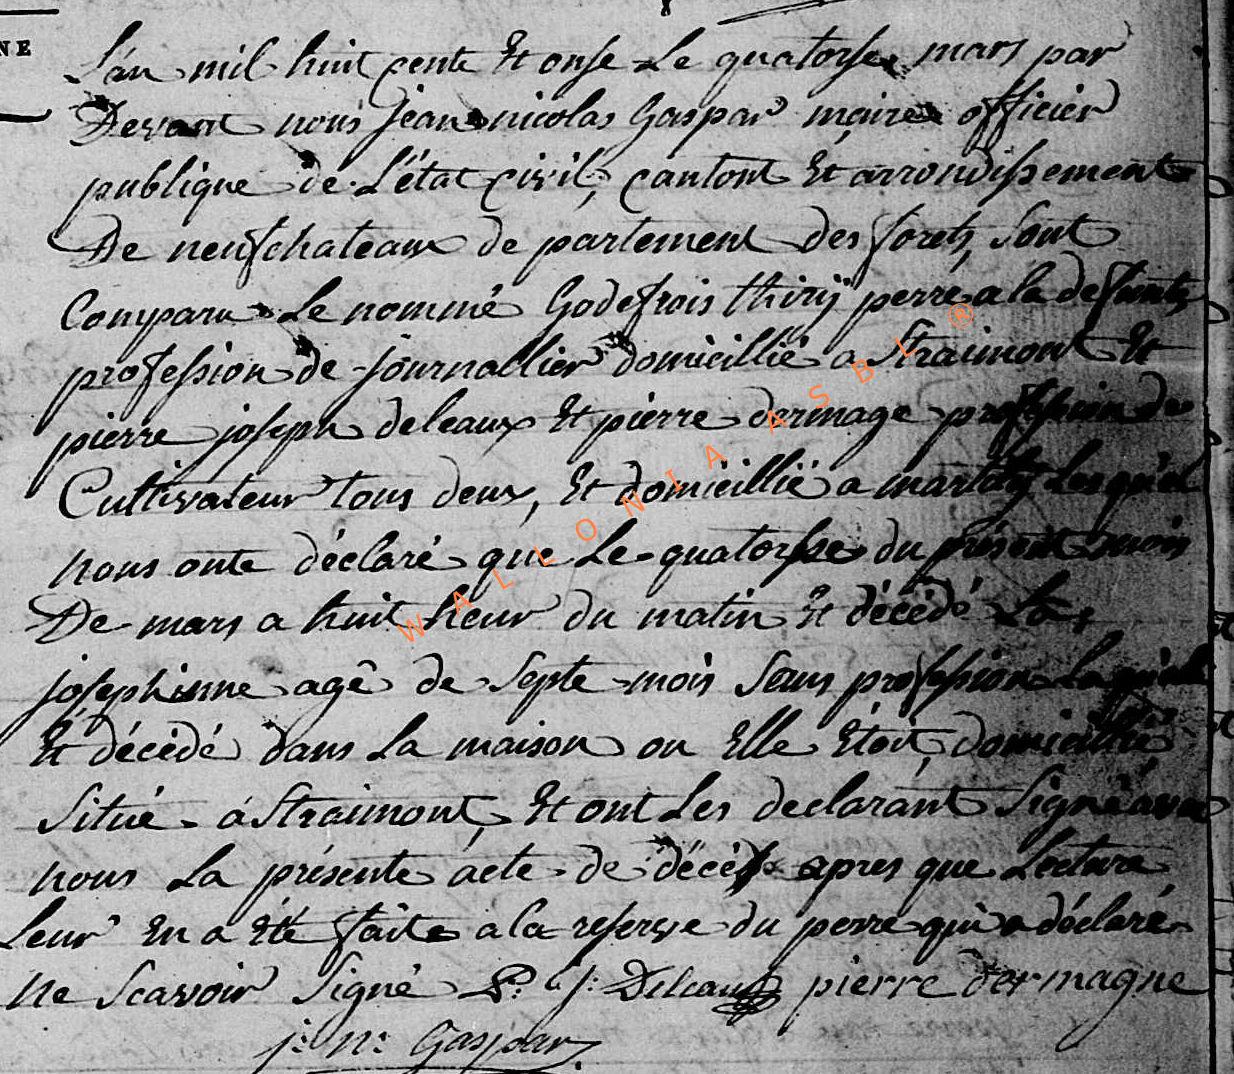 NE
L'an mil huit cente Et onse Le quatorse mars par
Devant nous jean nicolas Gaspar maire officier
publique de L'état civil, cantont Et arrondissement
De neufchateaux de partement des forets, sont
Comparu Le nommé Godefrois thiry perre a la defunte
profession de journallier domicillié a Straimont Et
pierre joseph deleaux Et pierre dermage profession de
Cultivateur tous deux, Et domicillié a martilly Lesquel
nous onte déclaré que Le quatorse du présent mois
De mars a huit heur du matin Et décédé La
josephinne agé de septe mois sans profession Laquele
Et décédé dans La maison ou Elle Etoit, domicillié
Situé á Straimont, Et ont Les declarant Signé avec
nous La présente acte de décès apres que Lectura
Leur En a Eté faite a la reserve du perre qui a déclaré
Ne Scavoir Signé P: J: Deleaux pierre dermagne
j: N: Gaspar
WALLONIA ASBL ®